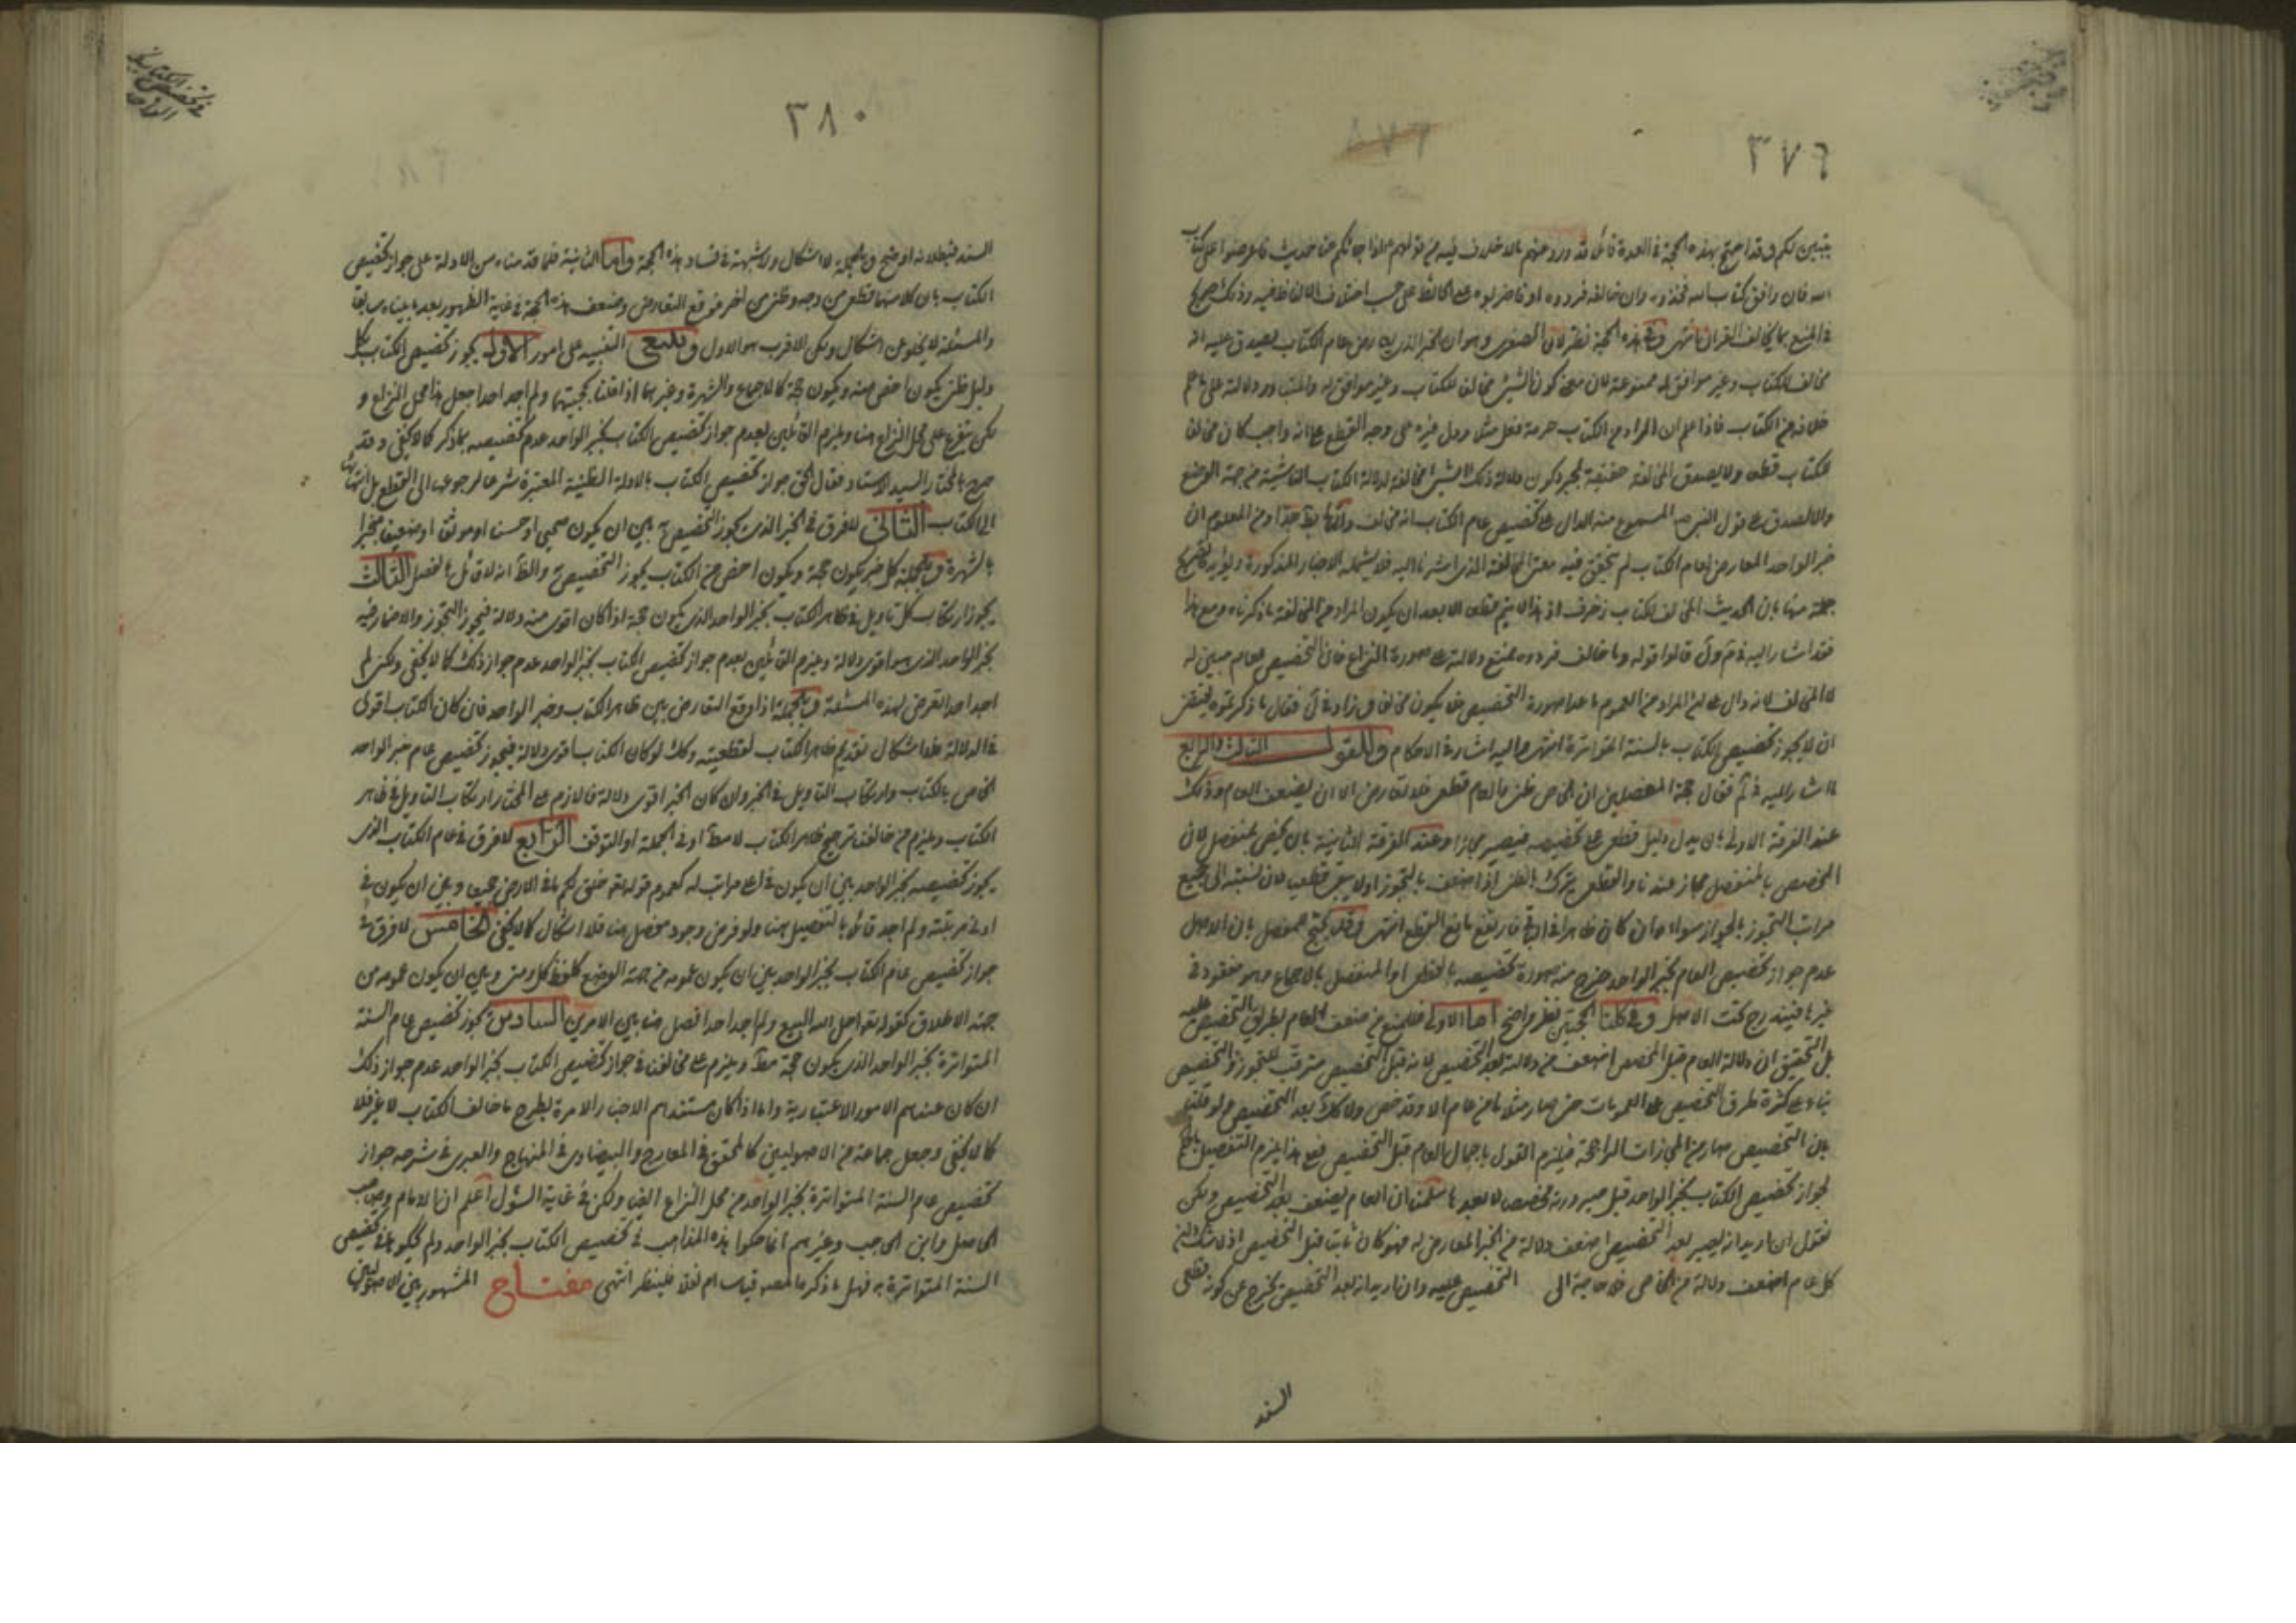 ٣٧٩
يتبين لكم وقد احتج بهذه الحجة في العدة قائلا قد ورد عنهم بلا خلاف من قولهم اذا جائكم عنا حديث فاعرضوا على كتاب
الله فان وافق كتاب الله فخذوه وان خالفه فردوه او فاضربوا به عرض الحائط على حسب اختلاف الالفاظ فيه وذلك صريح
في المنع بما يخالف القران انتهى وفي هذه الحجة نظر لان الصغرى وهو ان الخبر الذي عام الكتاب يصدق عليه انه
مخالف للكتاب وغير موافق له ممنوعة لان معنى كون الشيء مخالف للكتاب وغير موافق له دلالة على ما علم
خلافه من الكتاب فاذا علم ان المراد من الكتاب حرمة فعل مثلا ودل غيره على وجه القطع على انه واجب كان مخالف
للكتاب قطعا ولا يصدق المخالفة حقيقة بمجرد كون دلالة ذلك الشيء مخالفة لدلالة الكتاب الناشئة من جهة الوضع
والا لصدق على قول النبي ص المسموع منه الدال على تخصيص عام الكتاب انه مخالف ومن المعلوم ان
خبر الواحد المعارض لعام الكتاب لم يتحقق فيه معنى المخالفة الذي اشرنا اليه فلا يشمله الاخبار المذكورة ويؤيده تصريح
جملة منها بان الحديث المخالف للكتاب زخرف اذ هذا لا يتم الا بعد ان يكون المراد من المخالفة ما ذكرناه ومع هذا
فقد اشار اليه في قالوا قوله وما خالف فردوه يمنع دلالته على صورة النزاع فان التخصيص للعام مبين له
لا مخالف لانه دال على ان المراد من العموم ما عدا صورة التخصيص فلا يكون مخالفا وزاد في فقال ما ذكرتموه يقتضي
ان لا يجوز تخصيص الكتاب بالسنة المتواترة انتهى واليه اشار في الاحكام وللقول الثالث والرابع
ما اشار اليه في فقال حجة المفصلين ان الخاص ظني والعام قطعي فلا تعارض الا ان يضعف العام وذلك
عند الفرقة الاولى بان يدل دليل قطعي على تخصيصه فيصير مجازا وعند الفرقة الثانية بان يخص بمنفصل لان
المخصص بالمنفصل مجاز عندنا والقطعي يترك بالظني اذا ضعف بالتجوز اذ لا يبقى قطعيا لان نسبته الى جميع
مراتب التجوز بالجواز سواء وان كان ظاهرا في الباقي فارتفع مانع القطع انتهى وقد يحتج للمفصل بان الاصل
عدم جواز تخصيص العام بخبر الواحد خرج منه صورة تخصيصه بالقطعي او المنفصل بالاجماع وهو مفقود في
غيرها فيندرج تحت الاصل وفي كلتا الحجتين نظر واضح اما الاولى فللمنع من ضعف العام بطريق التخصيص عليه
بل التحقيق ان دلالة العام قبل المخصص اضعف من دلالته بعد التخصيص لانه قبل التخصيص مترقب للتجوز والتخصيص
بناء على كثرة طرق التخصيص على العمومات حتى صار مثلا ما من عام الا وقد خص ولا كذلك بعد التخصيص ولو قلنا
بان التخصيص صار من المجازات الراجحة فيلزم القول باجمال العام قبل التخصيص فعلى هذا يلزم التفصيل بالحكم
بجواز تخصيص الكتاب بخبر الواحد قبل صيرورته مخصصا لا بعده سلمنا ان العام يضعف بعد التخصيص ولكن
نقول ان اريد انه يصير بعد التخصيص اضعف دلالة من الخبر المعارض له فهو كان ثابتا قبل التخصيص اذ لا شك ان
كل عام اضعف دلالة من الخاص فلا حاجة الى التخصيص عليه وان اريد انه بعد التخصيص يخرج عن كونه قطعي
السند
٣٨٠
السند فبطلانه اوضح وبالجملة لا اشكال ولا شبهة في فساد هذه الحجة واما الثانية فلما قدمناه من الادلة على جواز تخصيص
الكتاب بان كلا منهما قطعي من وجه وظني من اخر فوقع التعارض وضعف هذه الحجة في غاية الظهور بعد ما بيناه سابقا
والمسئلة لا يخلو عن اشكال ولكن الاقرب هو الاول وينبغي التنبيه على امور الاول يجوز تخصيص الكتاب بكل
دليل ظني يكون اخص منه ويكون حجة كالاجماع والشهرة وغيرهما اذا قلنا بحجيتها ولم اجد احدا جعل هذا محل النزاع و
لكن يتفرع على محل النزاع هنا ويلزم القائلين بعدم جواز تخصيص الكتاب بخبر الواحد عدم تخصيصه بما ذكر كما لا يخفى وقد
صرح بالمختار السيد الاستاد فقال الحق جواز تخصيص الكتاب بالادلة الظنية المعتبرة شرعا لرجوعها الى القطع بل انتهائها
الى الكتاب الثاني لا فرق في الخبر الذي يجوز التخصيص به بين ان يكون صحيحا او حسنا او موثقا او ضعيفا منجبرا
بالشهرة وبالجملة كل خبر يكون حجة ويكون اخص من الكتاب يجوز التخصيص به والظ انه لا قائل بالفصل الثالث
يجوز ارتكاب كل تاويل في ظاهر الكتاب بخبر الواحد الذي يكون حجة اذا كان اقوى منه دلالة فيجوز التجوز والاضمار فيه
بخبر الواحد الذي هو اقوى دلالة ويلزم القائلين بعدم جواز تخصيص الكتاب بخبر الواحد عدم جواز ذلك كما لا يخفى ولكن لم
اجد احدا تعرض لهذه المسئلة وبالجملة اذا وقع التعارض بين ظاهر الكتاب وخبر الواحد فان كان الكتاب اقوى
في الدلالة فلا اشكال في تقديم ظاهر الكتاب لقطعيته وكذلك لو كان الكتاب اقوى دلالة فيجوز تخصيص عام خبر الواحد
الخاص بالكتاب وارتكاب التاويل في الخبر وان كان الخبر اقوى دلالة فاللازم على المختار ارتكاب التاويل في ظاهر
الكتاب ويلزم من خالفنا ترجيح ظاهر الكتاب اما مط او في الجملة او التوقف الرابع لا فرق في عام الكتاب الذي
يجوز تخصيصه بخبر الواحد بين ان يكون في اعلى مراتبه كعموم قوله تعالى خلق لكم ما في الارض جميعا وبين ان يكون في
ادنى مرتبته ولم اجد قائلا بالتفصيل هنا ولو فرض وجود مفصل هنا فلا اشكال كما لا يخفى الخامس لا فرق في
جواز تخصيص عام الكتاب بخبر الواحد بين ان يكون عمومه من جهة الوضع كلفظ كل ومن وبين ان يكون عمومه من
جهة الاطلاق كقوله تعالى احل الله البيع ولم اجد احدا فصل هنا بين الامرين السادس يجوز تخصيص عام السنة
المتواترة بخبر الواحد الذي يكون حجة مط ويلزم على مخالفنا في جواز تخصيص الكتاب بخبر الواحد عدم جواز ذلك
ان كان عندهم الامور الاعتبارية واما اذا كان مستندهم الاخبار الامرة بطرح ما خالف الكتاب لا غير فلا
كما لا يخفى وجعل جماعة من الاصوليين كالمحقق في المعارج والبيضاوي في المنهاج والعبري في شرحه جواز
تخصيص عام السنة المتواترة بخبر الواحد من محل النزاع ايضا ولكن في غاية السؤل اعلم ان الامام وصاحب
الحاصل وابن الحاجب وغيرهم انما حكوا هذه المذاهب في تخصيص الكتاب بخبر الواحد ولم يحكوها في تخصيص
السنة المتواترة به فهل ما ذكره المص قياسا ام نقلا فلينظر انتهى مفتاح المشهور بين الاصوليين